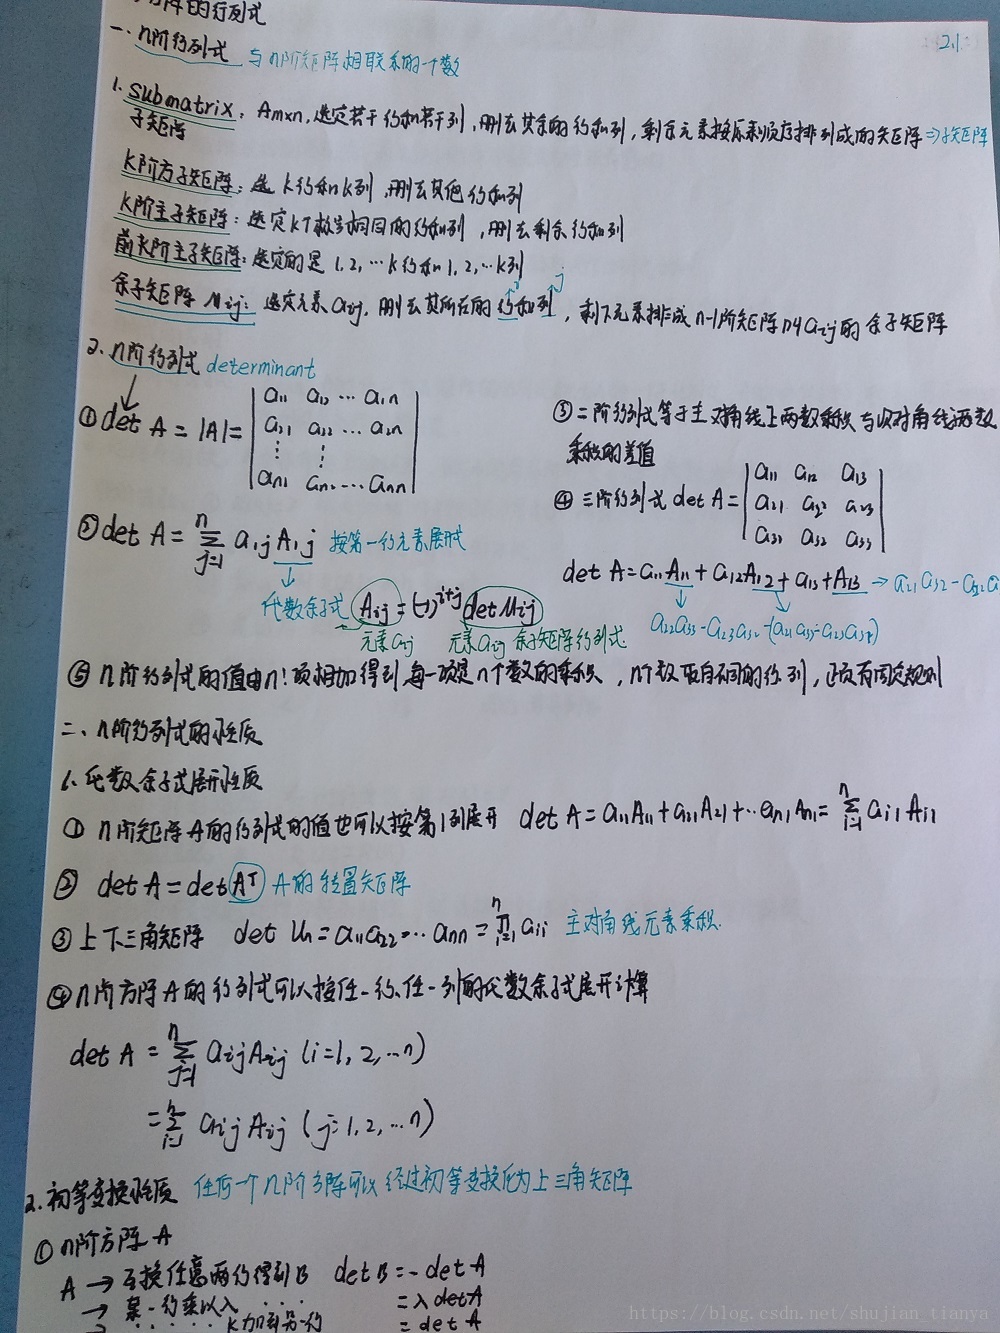 方阵的行列式
2.1.
一. n阶行列式 与n阶矩阵相联系的一个数
1. submatrix: Amxn, 选定若干行和若干列, 删去其余的行和列, 剩余元素按原来顺序排列成的矩阵 ⇒子矩阵
子矩阵
K阶方子矩阵: 选 k行和k列 删去其他行和列
K阶主子矩阵: 选定k个相同的行和列, 删去剩余行和列
前k阶主子矩阵: 选定的是 1, 2, …k行和 1, 2, …k列
i j
余子矩阵 Mij: 选定元素 aij, 删去其所在的行和列, 剩下元素排成 n-1阶矩阵 叫aij的 余子矩阵
2. n阶行列式 determinant
① det A = |A| =
a11 a12 … a1n
a21 a22 … a2n
⋮ ⋮
an1 an2 … ann
② det A = n∑j=1 a1j A1j 按第一行元素展开式
代数余子式 Aij = (-1)i+j det Mij
元素aij 元素aij 余子矩阵行列式
③ 二阶行列式等于主对角线上两数乘积与次对角线两数
乘积的差值
④ 三阶行列式 det A =
a11 a12 a13
a21 a22 a23
a31 a32 a33
det A = a11 A11 + a12 A12 + a13 + A13 → a21 a32 - a22 a
a22a33 - a23a32 -(a21a33-a23a31)
⑤ n阶行列式的值由n!项相加得到, 每一项是n个数的乘积, n个数取自不同的行列, 正负有固定规则
二、n阶行列式的性质
1. 代数余子式展开性质
① n阶矩阵A的行列式的值也可以按第1列展开 det A = a11A11 + a21A21 + … an1 An1 = n∑i=1 ai1 Ai1
② det A = det AT A的转置矩阵
③ 上下三角矩阵 det Un = a11a22 … ann = n∏i=1 aii 主对角线元素乘积.
④ n阶方阵A的行列式可以按任一行、任一列的代数余子式展开计算
det A = n∑j=1 aijAij (i=1, 2, …n)
= n∑i=1 aij Aij (j=1, 2, …n)
2. 初等变换性质 任何一个n阶方阵可以经过初等变换化为上三角矩阵
① n阶方阵A
A → 互换任意两行得到B det B = - det A
→ 某一行乘以λ … = λ detA
→ … k加到另一行 = det A
https://blog.csdn.net/shujian_tianya